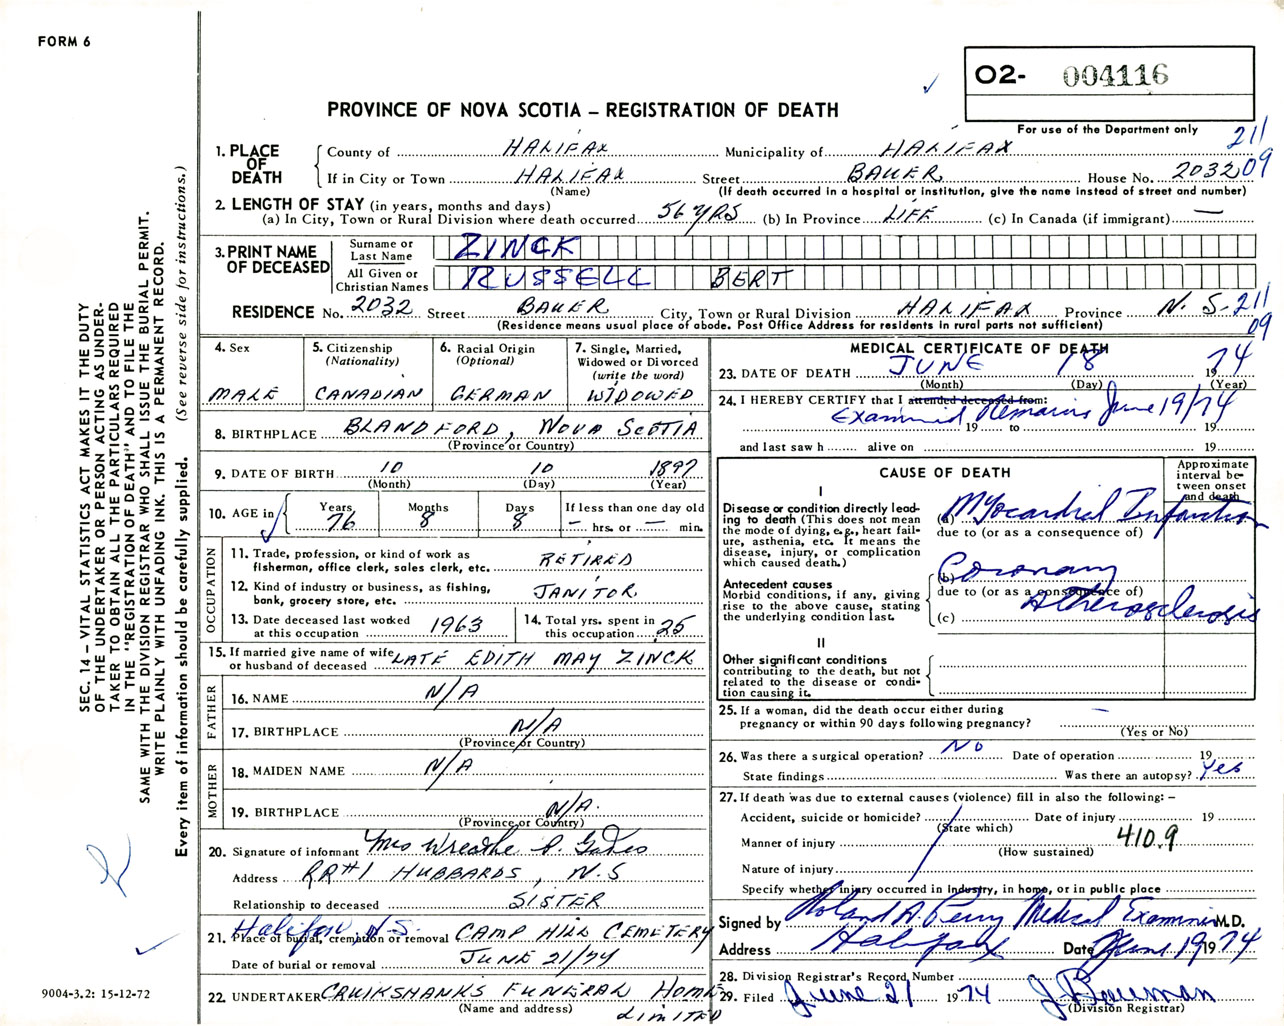 FORM 6
O2- 004116
PROVINCE OF NOVA SCOTIA – REGISTRATION OF DEATH
For use of the Department only
211
09
1. PLACE OF DEATH
County of HALIFAX Municipality of HALIFAX
If in City or Town HALIFAX Street BAUER House No. 2032
(Name) (If death occurred in a hospital or institution, give the name instead of street and number)
2. LENGTH OF STAY (in years, months and days)
(a) In City, Town or Rural Division where death occurred 56 YRS (b) In Province LIFE (c) In Canada (if immigrant) —
3. PRINT NAME OF DECEASED
Surname or Last Name ZINCK
All Given or Christian Names RUSSELL BERT
RESIDENCE No. 2032 Street BAUER City, Town or Rural Division HALIFAX Province N.S. 211
09
(Residence means usual place of abode. Post Office Address for residents in rural parts not sufficient)
4. Sex
MALE
5. Citizenship (Nationality)
CANADIAN
6. Racial Origin (Optional)
GERMAN
7. Single, Married, Widowed or Divorced (write the word)
WIDOWED
8. BIRTHPLACE BLANDFORD, NOVA SCOTIA
(Province or Country)
9. DATE OF BIRTH 10 10 1897
(Month) (Day) (Year)
10. AGE in Years 76 Months 8 Days 8 If less than one day old
— hrs. or — min.
OCCUPATION
11. Trade, profession, or kind of work as fisherman, office clerk, sales clerk, etc. RETIRED
12. Kind of industry or business, as fishing, bank, grocery store, etc. JANITOR
13. Date deceased last worked at this occupation 1963
14. Total yrs. spent in this occupation 25
15. If married give name of wife or husband of deceased LATE EDITH MAY ZINCK
FATHER
16. NAME N/A
17. BIRTHPLACE N/A
(Province or Country)
MOTHER
18. MAIDEN NAME N/A
19. BIRTHPLACE N/A.
(Province or Country)
20. Signature of informant Mrs Wreathe
Address RR#1 HUBBARDS, N.S
Relationship to deceased SISTER
Halifax N.S.
21. Place of burial, cremation or removal CAMP HILL CEMETERY
Date of burial or removal JUNE 21/74
22. UNDERTAKER CRUIKSHANKS FUNERAL HOME
(Name and address) LIMITED
MEDICAL CERTIFICATE OF DEATH
23. DATE OF DEATH JUNE 18 1974
(Month) (Day) (Year)
24. I HEREBY CERTIFY that I attended deceased from:
Examined Remains June 19/74
19 to 19
and last saw h alive on 19
CAUSE OF DEATH
Approximate interval between onset and death
I
Disease or condition directly leading to death (This does not mean the mode of dying, e.g., heart failure, asthenia, etc. It means the disease, injury, or complication which caused death.)
(a) Myocardial Infarction
due to (or as a consequence of)
Antecedent causes
Morbid conditions, if any, giving rise to the above cause, stating the underlying condition last.
(b) Coronary
due to (or as a consequence of)
(c) Atherosclerosis
II
Other significant conditions contributing to the death, but not related to the disease or condition causing it.
25. If a woman, did the death occur either during pregnancy or within 90 days following pregnancy? —
(Yes or No)
26. Was there a surgical operation? No Date of operation 19
State findings Was there an autopsy? Yes
27. If death was due to external causes (violence) fill in also the following: –
Accident, suicide or homicide? Date of injury 19
(State which)
Manner of injury 410.9
(How sustained)
Nature of injury
Specify whether injury occurred in Industry, in home, or in public place
Signed by Roland A. Perry Medical Examiner M.D.
Address Halifax Date June 19 1974
28. Division Registrar's Record Number
29. Filed June 21 1974
(Division Registrar)
SEC. 14 – VITAL STATISTICS ACT MAKES IT THE DUTY
OF THE UNDERTAKER OR PERSON ACTING AS UNDER-
TAKER TO OBTAIN ALL THE PARTICULARS REQUIRED
IN THE "REGISTRATION OF DEATH" AND TO FILE THE
SAME WITH THE DIVISION REGISTRAR WHO SHALL ISSUE THE BURIAL PERMIT.
WRITE PLAINLY WITH UNFADING INK. THIS IS A PERMANENT RECORD.
Every item of information should be carefully supplied. (See reverse side for instructions.)
9004-3.2: 15-12-72